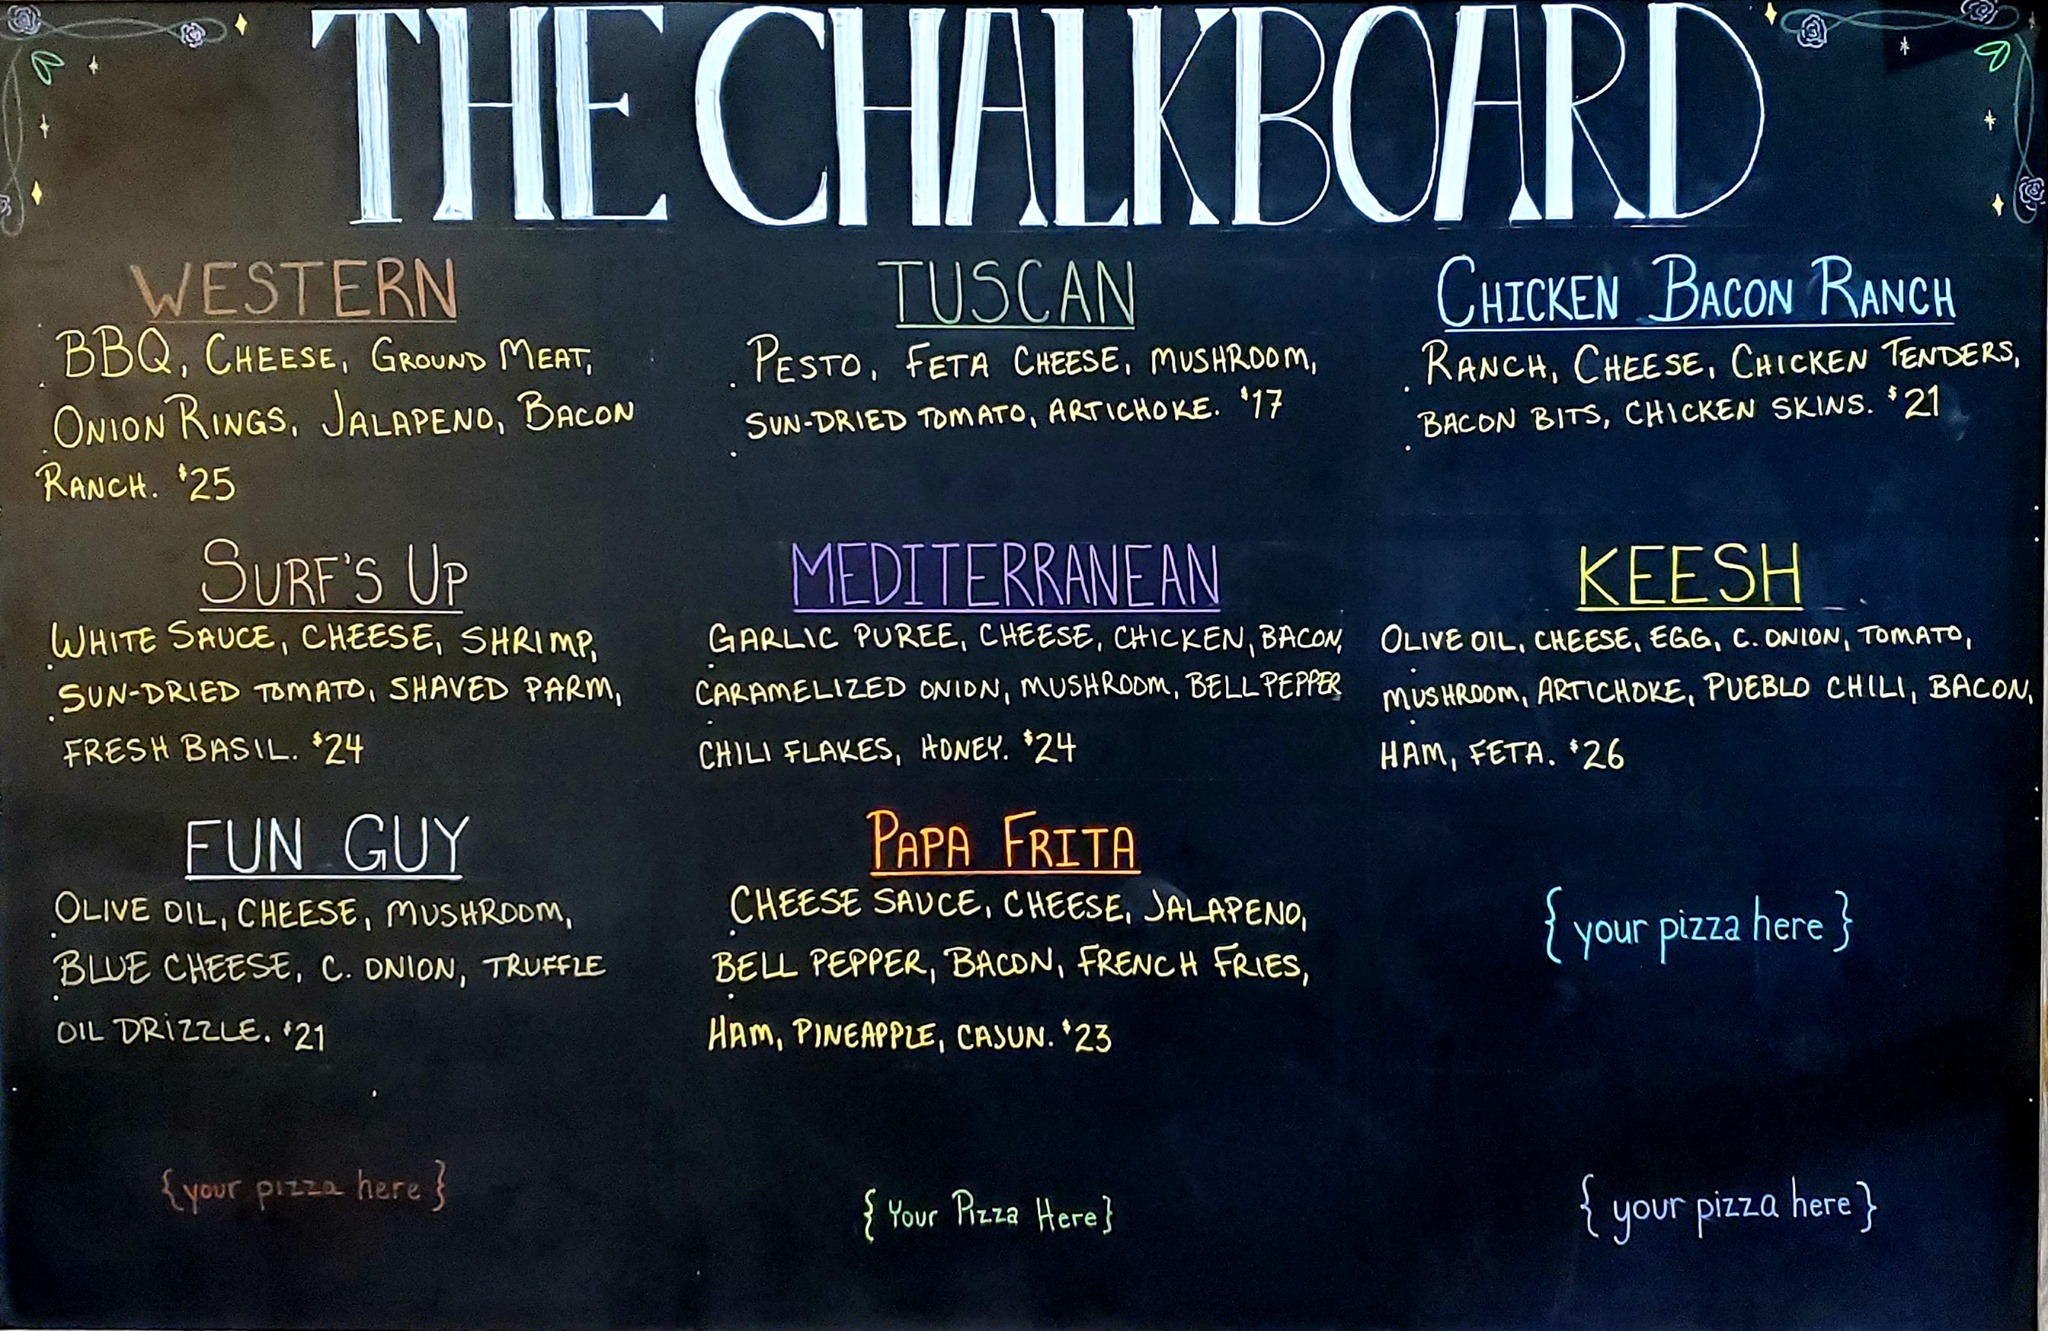 THE CHALKBOARD
WESTERN
BBQ, CHEESE, GROUND MEAT,
ONION RINGS, JALAPENO, BACON
RANCH. $25
TUSCAN
PESTO, FETA CHEESE, MUSHROOM,
SUN-DRIED TOMATO, ARTICHOKE. $17
CHICKEN BACON RANCH
RANCH, CHEESE, CHICKEN TENDERS,
BACON BITS, CHICKEN SKINS. $21
SURF'S UP
WHITE SAUCE, CHEESE, SHRIMP,
SUN-DRIED TOMATO, SHAVED PARM,
FRESH BASIL. $24
MEDITERRANEAN
GARLIC PUREE, CHEESE, CHICKEN, BACON,
CARAMELIZED ONION, MUSHROOM, BELL PEPPER
CHILI FLAKES, HONEY. $24
KEESH
OLIVE OIL, CHEESE, EGG, C. ONION, TOMATO,
MUSHROOM, ARTICHOKE, PUEBLO CHILI, BACON,
HAM, FETA. $26
FUN GUY
OLIVE OIL, CHEESE, MUSHROOM,
BLUE CHEESE, C. ONION, TRUFFLE
OIL DRIZZLE. $21
PAPA FRITA
CHEESE SAUCE, CHEESE, JALAPENO,
BELL PEPPER, BACON, FRENCH FRIES,
HAM, PINEAPPLE, CAJUN. $23
{your pizza here}
{your pizza here}
{Your Pizza Here}
{your pizza here}